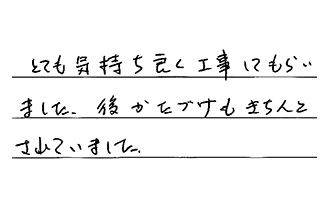 とても気持ち良く工事してもらい
ました。後かたづけもきちんと
されていました。